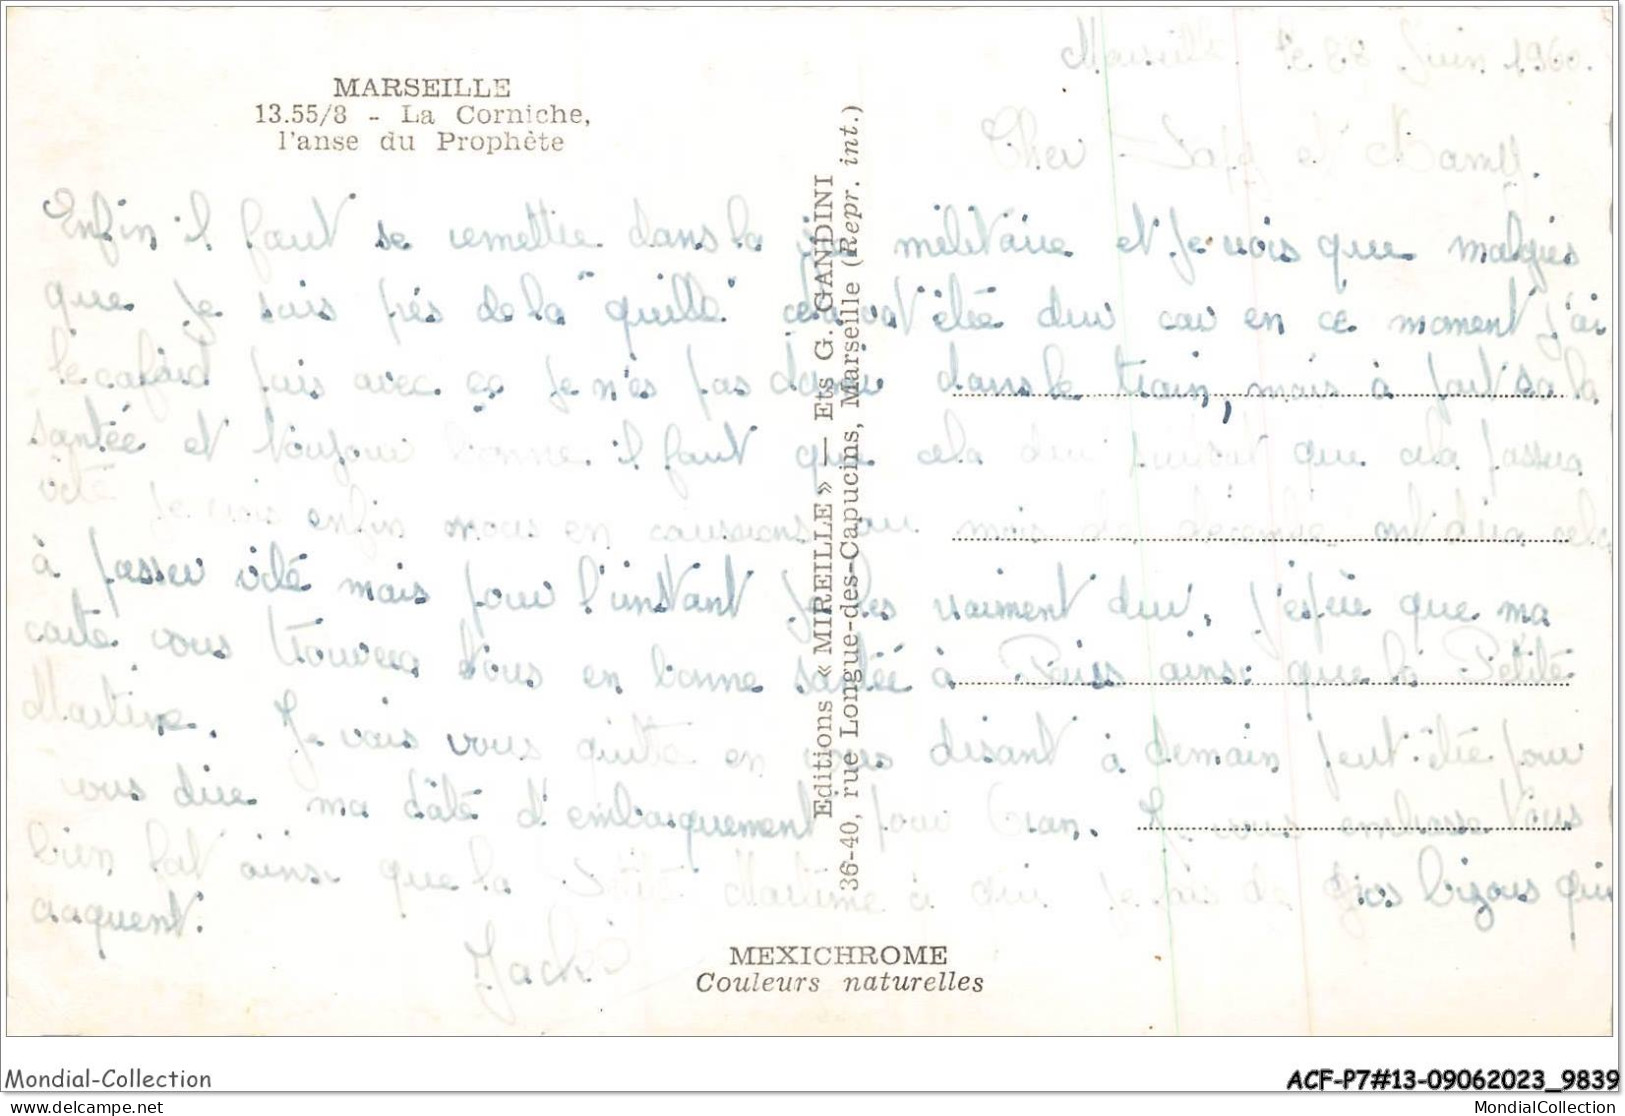 MARSEILLE
13.55/8 - La Corniche,
l'anse du Prophète
Marseille le 28 Juin 1960.
Cher Papy et Mamy.
Enfin il faut se remettre dans la vie militaire et Je vois que malgrés
que Je suis prés de la "quille" cela vat être dur car en ce moment J'ai
le cafard puis avec ça Je n'es pas dormi dans le train, mais à part sa la
santée et toujour bonne. il faut que cela dur puisque cela passera
vite Je vois enfin nous en causerons au mois de décembre ont dira cela
à passer vite mais pour l'instant Je les vraiment dur, J'espère que ma
carte vous trouvera tous en bonne santée à ainsi que la Petite
Martine. Je vais vous quitte en vous disant à demain peut-être pour
vous dire ma date d'embarquement pour Oran. Je vous embrasse tous
bien fort ainsi que la Petite Martine à qui Je fais de gros bizous qui
claquent.
Jacki
Editions « MIREILLE » — Ets G. GANDINI
36-40, rue Longue-des-Capucins, Marseille (Repr. int.)
MEXICHROME
Couleurs naturelles
Mondial-Collection
ACF-P7#13-09062023_9839
mondial-collection
MondialCollection